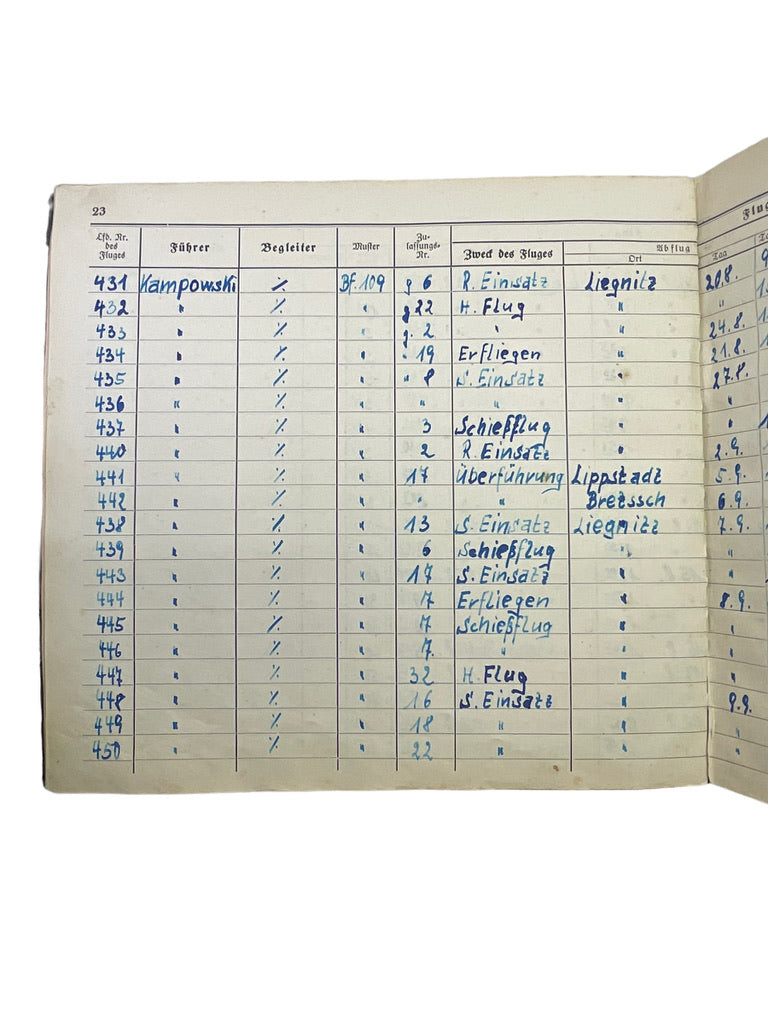 23
Flug
Lfd. Nr. des Fluges Führer Begleiter Muster Zulassungs-Nr. Zweck des Fluges Abflug Ort Tag
431 Kampowski ⁒ Bf. 109 g 6 R. Einsatz Liegnitz 20.8.
432 " ⁒ " g 22 H. Flug " "
433 " ⁒ " g. 2 " " 24.8.
434 " ⁒ " " 19 Erfliegen " 21.8.
435 " ⁒ " " 8 S. Einsatz " 27.8.
436 " ⁒ " " " " " "
437 " ⁒ " 3 Schießflug " "
440 " ⁒ " 2 R. Einsatz " 2.9.
441 " ⁒ " 17 Überführung Lippstadt 5.9.
442 " ⁒ " " " Bretssch 6.9.
438 " ⁒ " 13 S. Einsatz Liegnitz 7.9.
439 " ⁒ " 6 Schießflug " "
443 " ⁒ " 17 S. Einsatz " "
444 " ⁒ " 7 Erfliegen " 8.9.
445 " ⁒ " 7 Schießflug " "
446 " ⁒ " 7. " " "
447 " ⁒ " 32 H. Flug " "
448 " ⁒ " 16 S. Einsatz " 9.9.
449 " ⁒ " 18 " " "
450 " ⁒ " 22 " " "